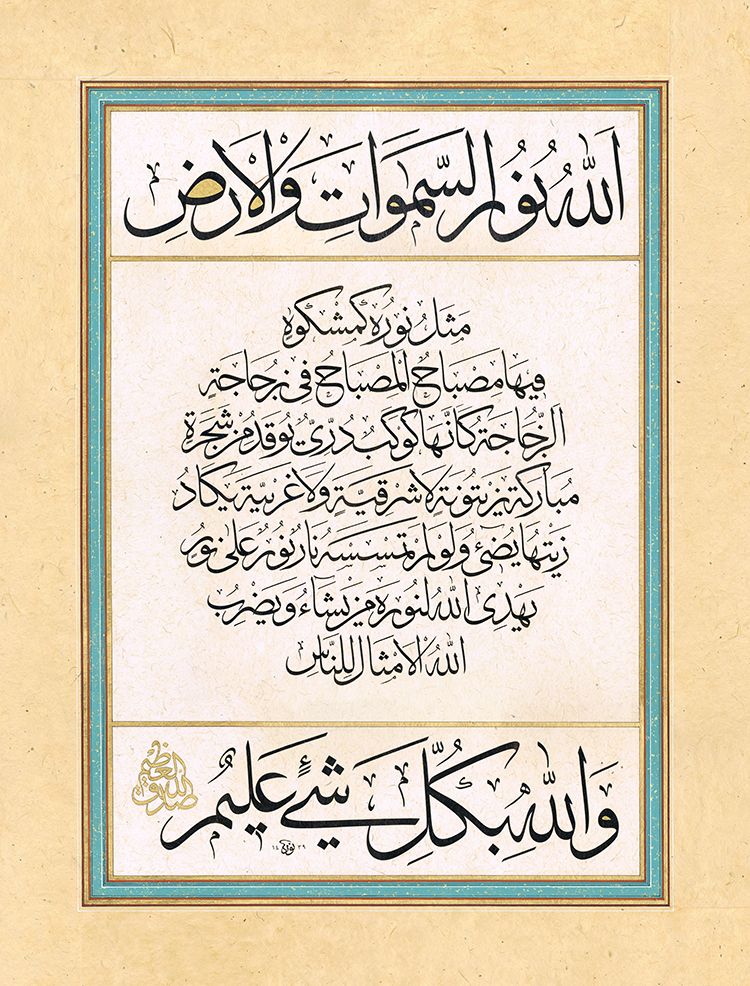 اَللّٰهُ نُورُ السَّمٰوَاتِ وَالْاَرْضِ
مَثَلُ نُورِهٖ كَمِشْكٰوةٍ
فِيهَا مِصْبَاحٌ اَلْمِصْبَاحُ فِى زُجَاجَةٍ
اَلزُّجَاجَةُ كَاَنَّهَا كَوْكَبٌ دُرِّىٌّ يُوقَدُ مِنْ شَجَرَةٍ
مُبَارَكَةٍ زَيْتُونَةٍ لَا شَرْقِيَّةٍ وَلَا غَرْبِيَّةٍ يَكَادُ
زَيْتُهَا يُضِىءُ وَلَوْ لَمْ تَمْسَسْهُ نَارٌ نُورٌ عَلٰى نُورٍ
يَهْدِى اللّٰهُ لِنُورِهٖ مَنْ يَشَاءُ وَيَضْرِبُ
اللّٰهُ الْاَمْثَالَ لِلنَّاسِ
وَاللّٰهُ بِكُلِّ شَىْءٍ عَلِيمٌ
صدق الله العظيم
١٤٣٩